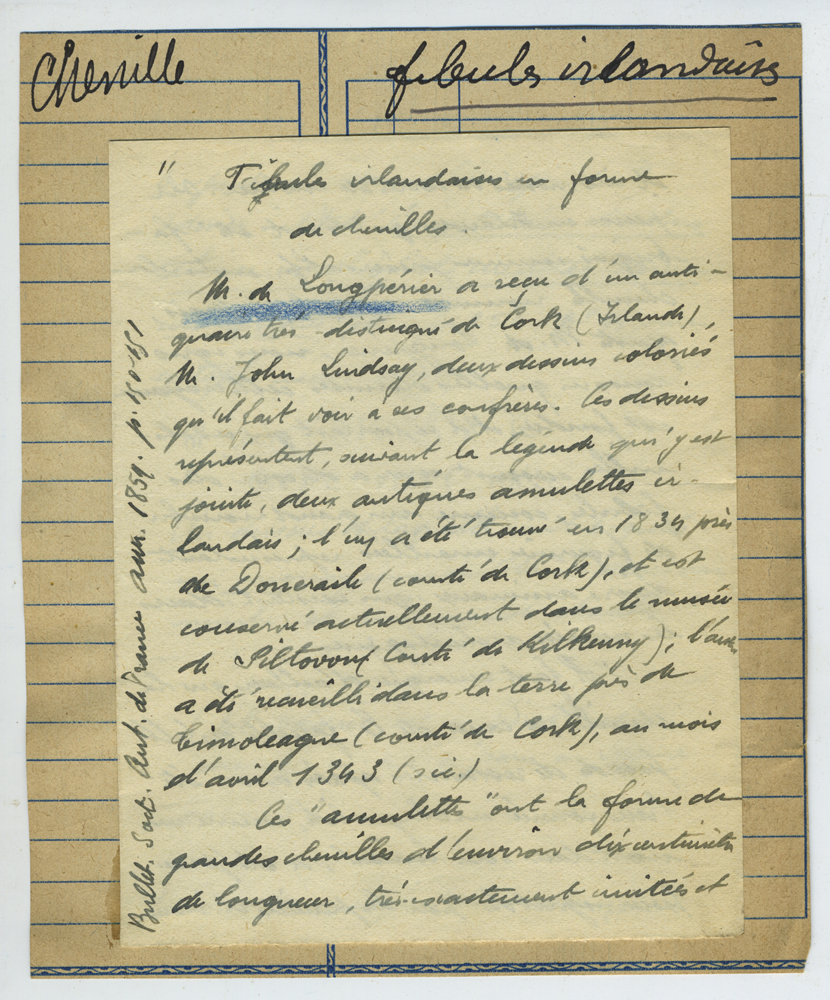 Chenille
fibules irlandaises
" Fibules irlandaises en forme
de chenilles.
M. de Longpérier a reçu d'un anti-
quaire très distingué de Cork (Irlande),
M. John Lindsay, deux dessins coloriés
qu'il fait voir à ses confrères. Ces dessins
représentent, suivant la légende qui y est
jointe, deux antiques amulettes ir-
landais ; l'un a été trouvé en 1834 près
de Doneraile (comté de Cork), et est
conservé actuellement dans le musée
de Piltown (Comté de Kilkenny) ; l'autre
a été recueilli dans la terre près de
Timoleague (comté de Cork), au mois
d'avril 1343 (sic.)
Ces "amulettes" ont la forme de
grandes chenilles d'environ dix centimètres
de longueur, très-exactement imitées et
Bullet. Soct. Ant. de France ann. 1859. p. 150-151